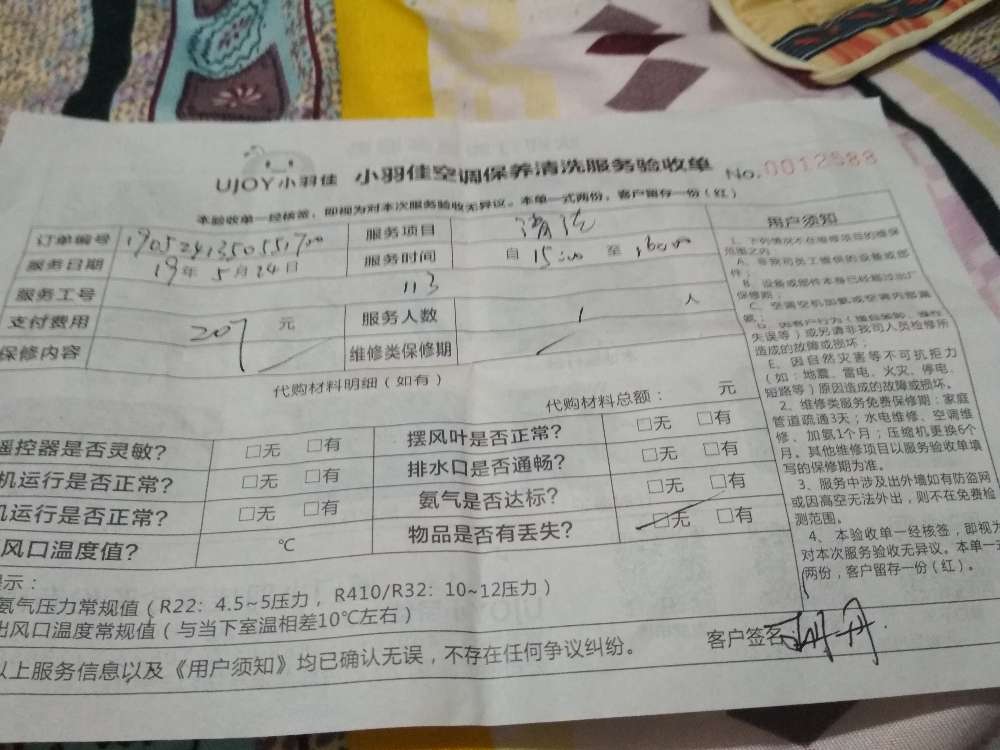 UJOY小羽佳 小羽佳空调保养清洗服务验收单 No.0012588
本验收单一经核签,即视为对本次服务验收无异议。本单一式两份,客户留存一份(红)
订单编号 服务项目 清洗
服务日期 19年5月24日 服务时间 自 15:00 至 16:00
服务工号 113
支付费用 207 元 服务人数 1 人
保修内容 维修类保修期
代购材料明细(如有)
代购材料总额: 元
遥控器是否灵敏? □无 □有 摆风叶是否正常? □无 □有
机运行是否正常? □无 □有 排水口是否通畅? □无 □有
机运行是否正常? □无 □有 氨气是否达标? □无 □有
风口温度值? ℃ 物品是否有丢失? □无 □有
提示:
氨气压力常规值(R22:4.5~5压力,R410/R32:10~12压力)
出风口温度常规值(与当下室温相差10℃左右)
以上服务信息以及《用户须知》均已确认无误,不存在任何争议纠纷。
客户签名
用户须知
1、下列情况不在维修项目的维保
范围之内
A、非我司员工提供的设备或部
件;
B、设备或部件本身已经超过出厂
保修期;
C、空调空机加氨或空调内部漏
氨;
失误等)或另请非我司人员检修所
造成的故障或损坏;
E、因自然灾害等不可抗拒力
(如:地震、雷电、火灾、停电、
短路等)原因造成的故障或损坏。
2、维修类服务免费保修期:家庭
管道疏通3天;水电维修、空调维
修、加氨1个月;压缩机更换6个
月。其他维修项目以服务验收单填
写的保修期为准。
3、服务中涉及出外墙如有防盗网
或因高空无法外出,则不在免费检
测范围。
4、本验收单一经核签,即视为
对本次服务验收无异议。本单一式
两份,客户留存一份(红)。